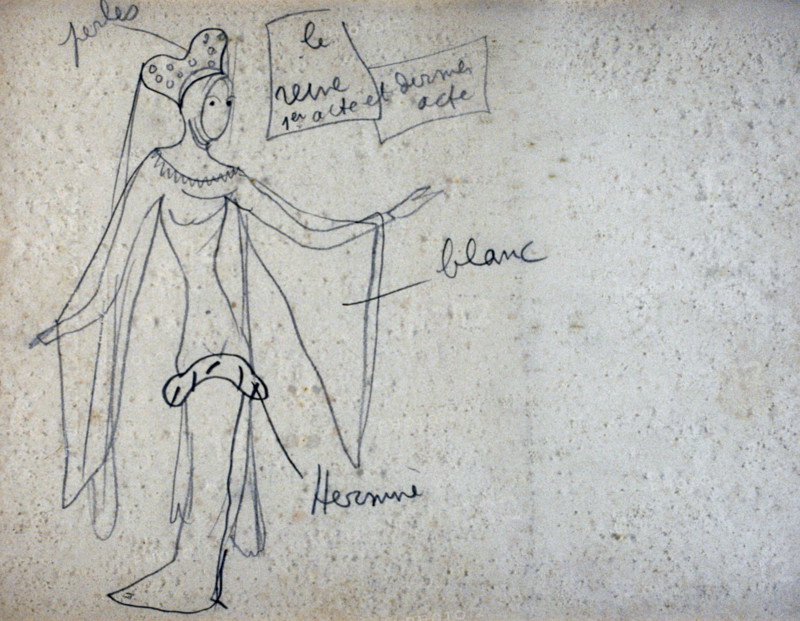 perles
le
reine
1er acte et dernier
acte
blanc
Hermine